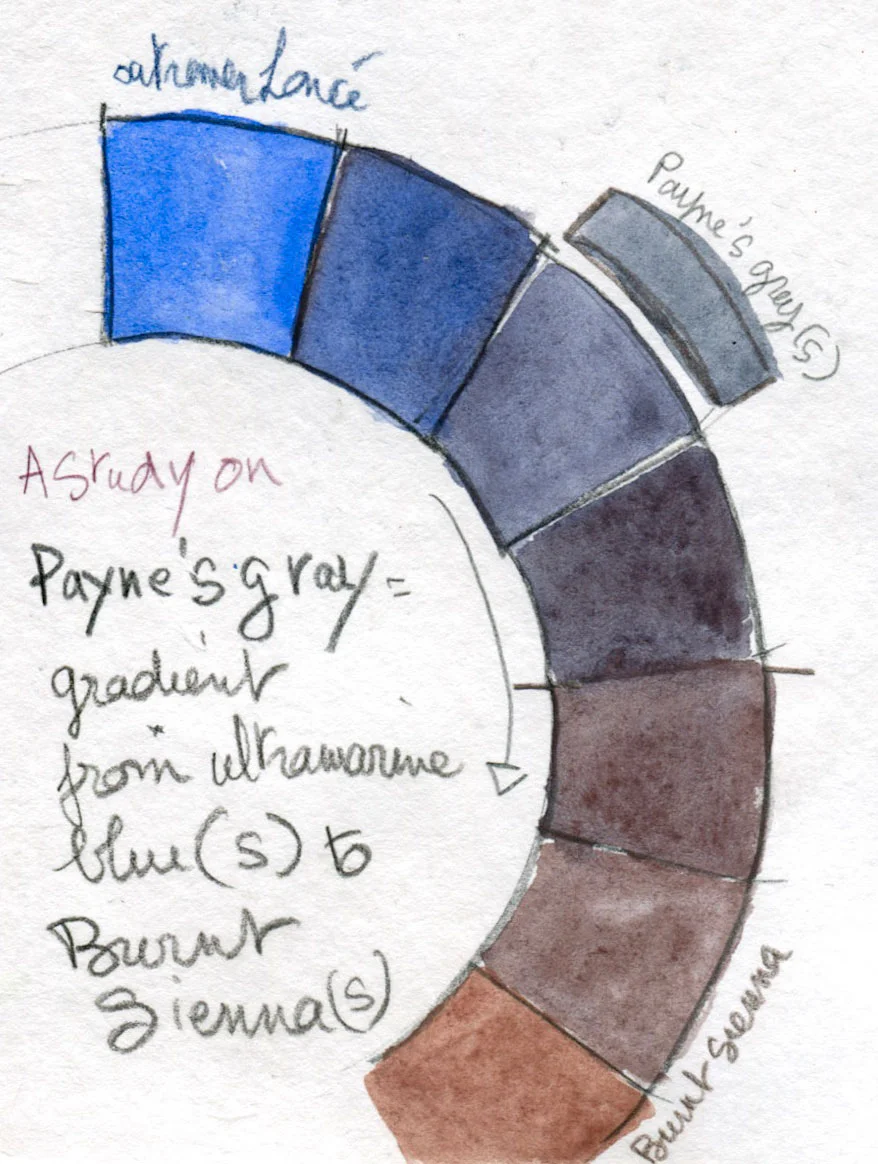 Payne's grey(s)
A Study on
Payne's gray =
gradient
from ultramarine
blue(s) to
Burnt
Sienna(s)
Burnt Sienna